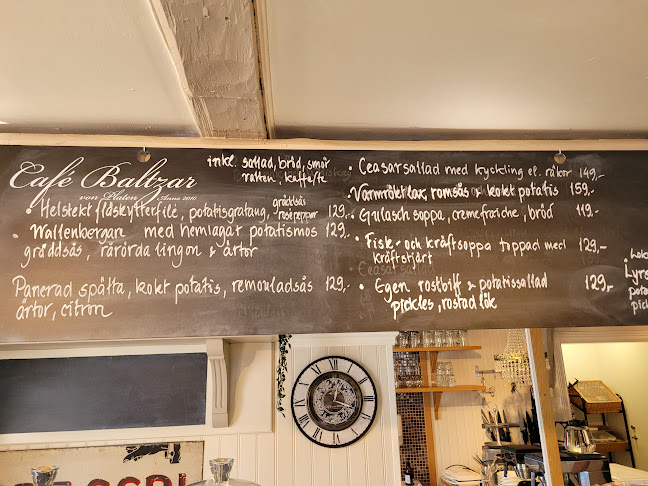 Café Baltzar
von Platen Anno 2010
inkl. sallad, bröd, smör
vatten, kaffe/te
• Helstekt fläskytterfilé, potatisgratäng, gräddsås
rosépeppar 129,-
• Wallenbergare med hemlagat potatismos 129,-
gräddsås, rårörda lingon & ärtor
Panerad spätta, kokt potatis, remouladsås 129,-
ärtor, citron
• Ceasarsallad med kyckling el. räkor 149,-
Varmrökt lax, romsås & kokt potatis 159,-
• Gulasch soppa, cremefraiche, bröd 119,-
• Fisk- och kräftsoppa toppad med 129,-
kräftstjärt
Ceasarsallad
• Egen rostbiff & potatissallad 129,-
pickles, rostad lök
Lyrs
pota
pick